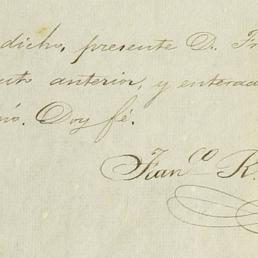 dicho, presente D. Fr
anterior, y enterad
Doy fé.
Fran.co R.